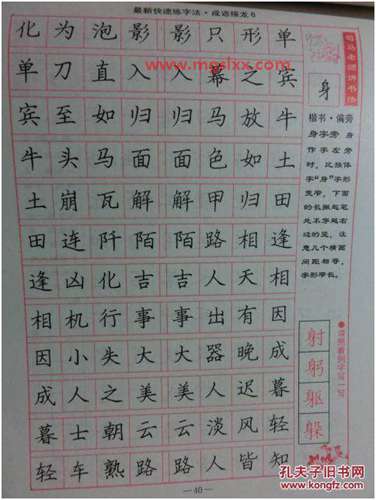 最新快速练字法·成语接龙6
化为泡影影只形单
单刀直入入幕之宾
宾至如归归马放牛
牛头马面面色如土
土崩瓦解解甲归田
田连阡陌陌路相逢
逢凶化吉吉人天相
相机行事事出有因
因小失大大器晚成
成人之美美人迟暮
暮士朝云云淡风轻
轻车熟路路人皆知
—40—
司马老师讲书法
身
楷书·偏旁
身字旁 身
作字左旁
时，比独体
字“身”字形
变窄，下面
的长撇起笔
处不穿越右
边的竖。注
意几个横画
间距相等，
字形窄长。
射
躬
躯
躲
孔夫子旧书网
kongfz.com